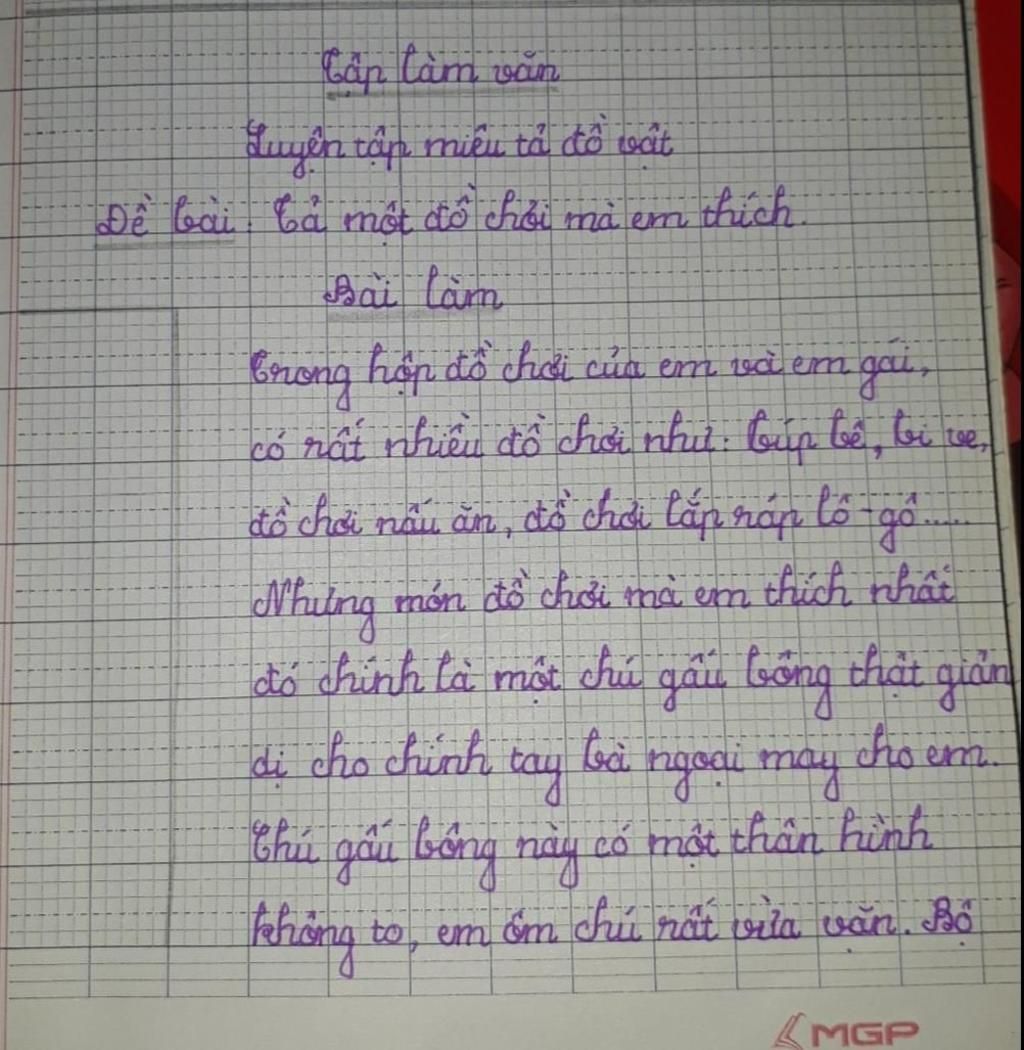 Tập làm văn
Luyện tập miêu tả đồ vật
Đề bài: Tả một đồ chơi mà em thích.
Bài làm
Trong hộp đồ chơi của em và em gái,
có rất nhiều đồ chơi như: búp bê, bi ve,
đồ chơi nấu ăn, đồ chơi lắp ráp lô-gô.....
Nhưng món đồ chơi mà em thích nhất
đó chính là một chú gấu bông thật giản
dị cho chính tay bà ngoại may cho em.
Chú gấu bông này có một thân hình
không to, em ôm chú rất vừa vặn. Bộ
MGP